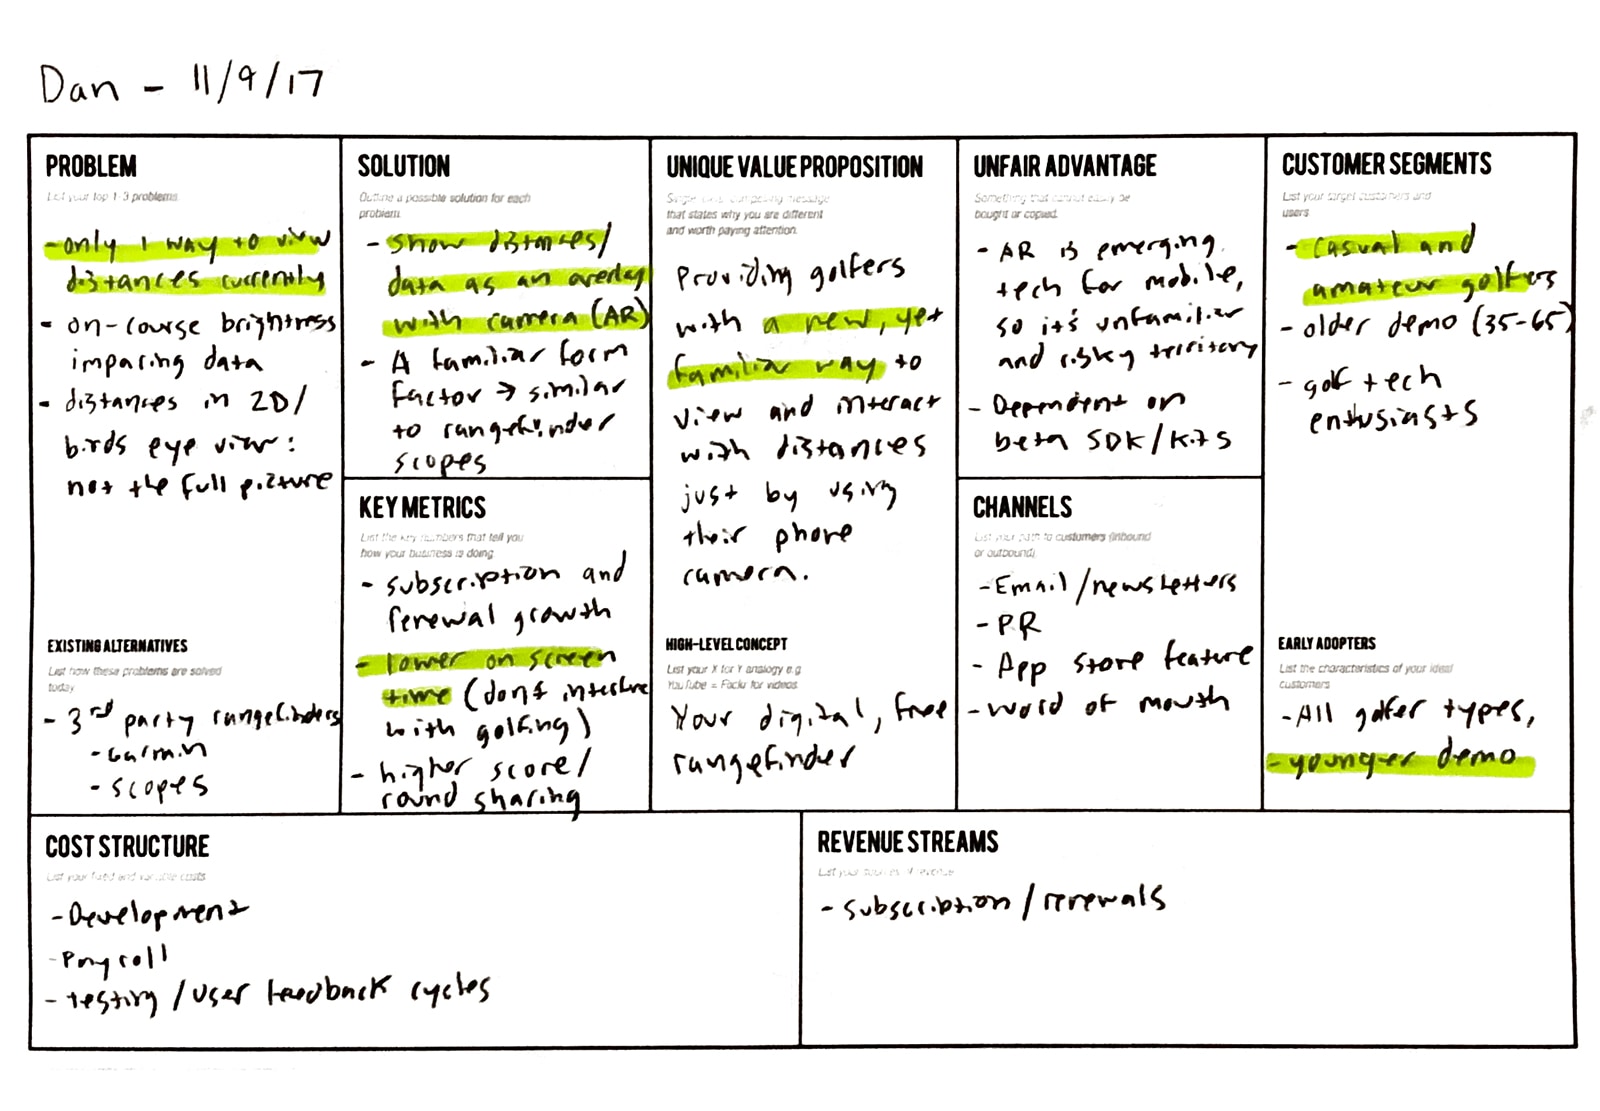 Dan - 11/9/17
PROBLEM
List your top 1-3 problems.
- only 1 way to view
distances currently
- on-course brightness
imparing data
- distances in 2D/
birds eye view:
not the full picture
EXISTING ALTERNATIVES
List how these problems are solved
today
- 3rd party rangefinders
- Garmin
- scopes
SOLUTION
Outline a possible solution for each
problem.
- show distances/
data as an overlay
with camera (AR)
- A familiar form
factor → similar
to rangefinder
scopes
KEY METRICS
List the key numbers that tell you
how your business is doing
- subscription and
renewal growth
- lower on screen
time (don't interfere
with golfing)
- higher score/
round sharing
UNIQUE VALUE PROPOSITION
Single, clear, compelling message
that states why you are different
and worth paying attention.
Providing golfers
with a new, yet
familiar way to
view and interact
with distances
just by using
their phone
camera.
HIGH-LEVEL CONCEPT
List your X for Y analogy e.g.
YouTube = Flickr for videos.
Your digital, free
rangefinder
UNFAIR ADVANTAGE
Something that cannot easily be
bought or copied.
- AR is emerging
tech for mobile,
so it's unfamiliar
and risky territory
- Dependent on
beta SDK/Kits
CHANNELS
List your path to customers (inbound
or outbound)
- Email/newsletters
- PR
- App store feature
- word of mouth
CUSTOMER SEGMENTS
List your target customers and
users
- casual and
amateur golfers
- older demo (35-65)
- golf tech
enthusiasts
EARLY ADOPTERS
List the characteristics of your ideal
customers
- All golfer types,
- younger demo
COST STRUCTURE
List your fixed and variable costs
- Development
- Payroll
- testing/user feedback cycles
REVENUE STREAMS
List your sources of revenue
- subscription/renewals